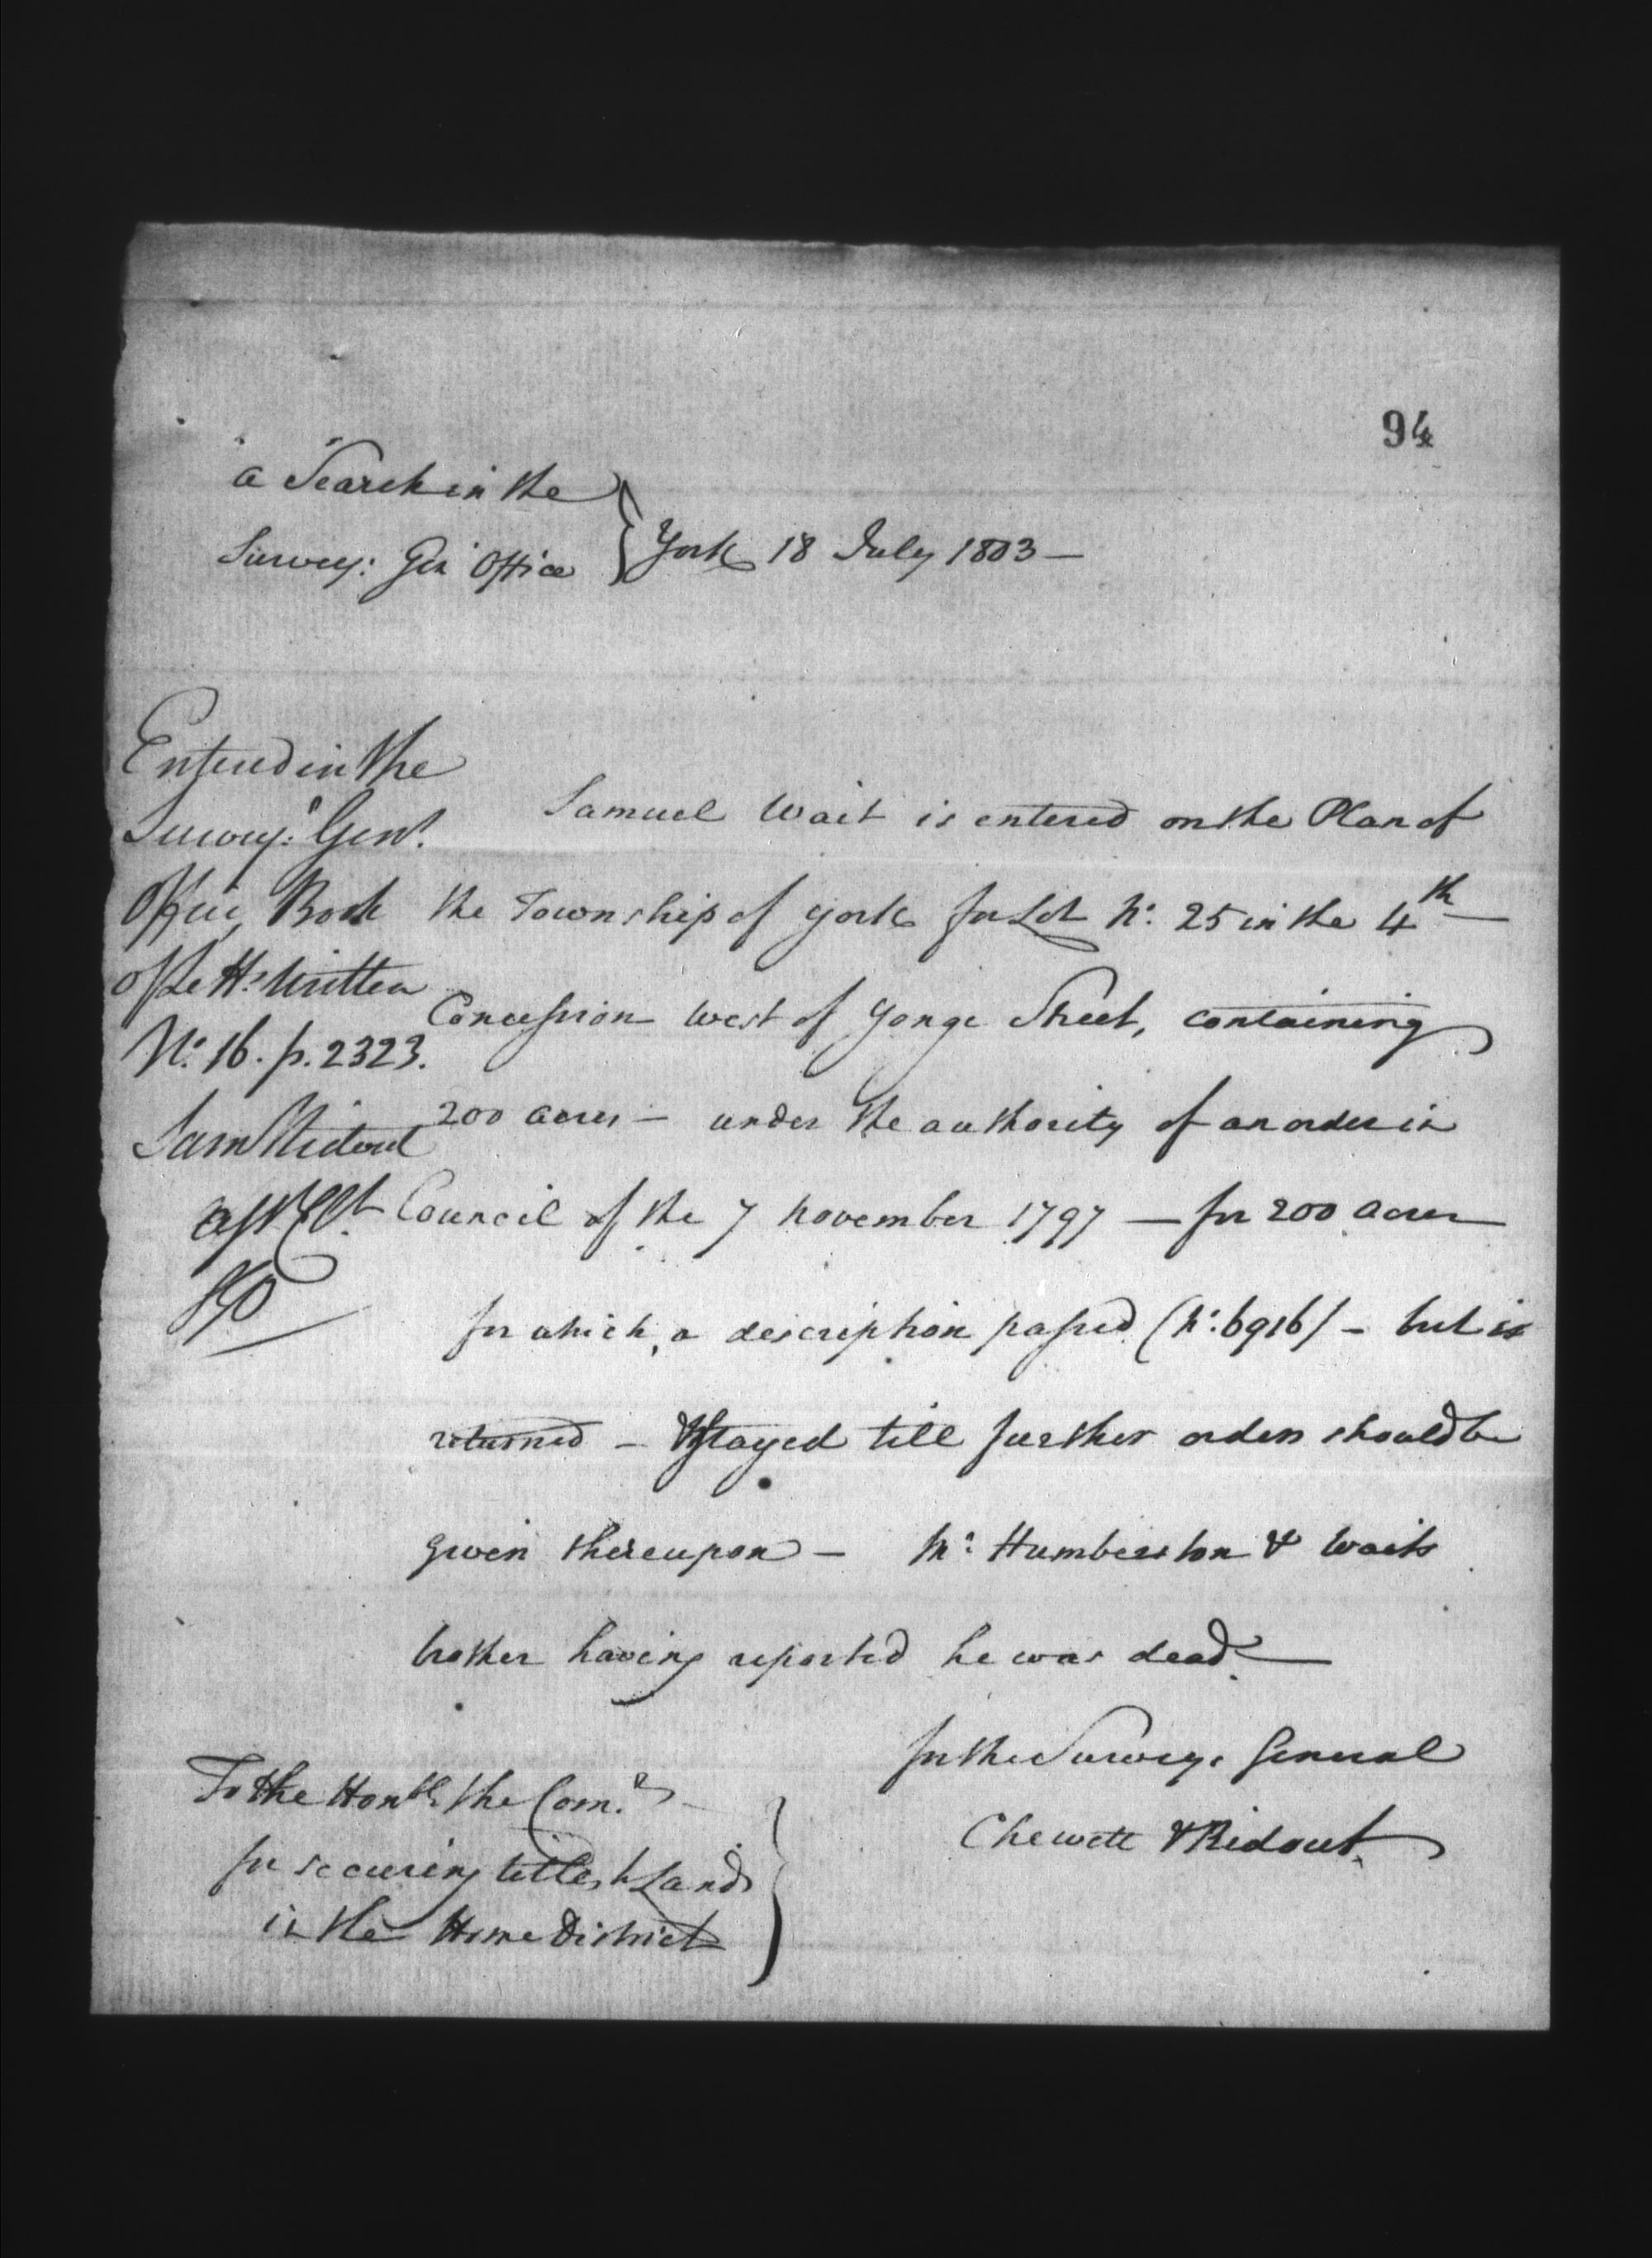 94
a Search in the
Survey: Gen Office } York 18 July 1803 —
Entered in the
Survey.r Gen.l
Office, Book
of the H.
No. 16. p. 2323.
Sam Ridout
Asst Clk
SGO
Samuel Wait is entered on the Plan of
the Township of York for Lot No: 25 in the 4th —
Concession west of Yonge Street, containing
200 acres — under the authority of an order in
Council of the 7 November 1797 — for 200 acres
for which, a description passed (No: 6916) — but is
returned — & Stayed till further orders should be
given thereupon — Mr: Humberston & Waits
brother having reported he was dead —
for the Survey. General
Chewett & Ridout.
To the Honble the Com.rs
for securing titles to Lands
in the Home District }